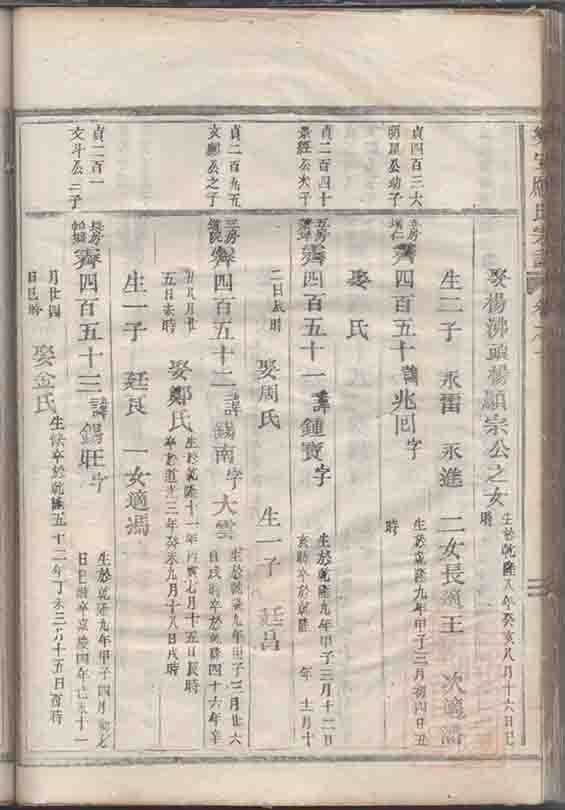 娶楊沸頭楊顯宗公之女
生於乾隆八年癸亥八月十六日巳
時
生二子 永雷 永進 二女長適王 次適潘
貞四百三六
明星公幼子
齊四百五十諱兆回字
生於乾隆九年甲子三月初四日丑
時
娶 氏
貞二百四十
景經公大子
五房
齊四百五十一諱鍾寶字
生於乾隆九年甲子三月十二日
亥時卒於乾隆 年 十二月十
二日辰時 娶周氏 生一子 廷昌
貞二百九五
文郷公之子
三房
齊四百五十二諱錢南字大雲
生於乾隆九年甲子三月廿六
日戌時卒於乾隆四十六年辛
丑八月廿
五日亥時 娶鄭氏
生於乾隆十一年丙寅七月十五日辰時
卒於道光三年癸未九月十八日戌時
生一子 廷良 一女適馮
貞二百一
文斗公二子
長房
齊四百五十三諱錫旺字
生於乾隆九年甲子四月初七
日巳時卒嘉慶四年己未十一
月廿四
日巳時 娶金氏
生 卒於乾隆五十二年丁未三月十五日酉時